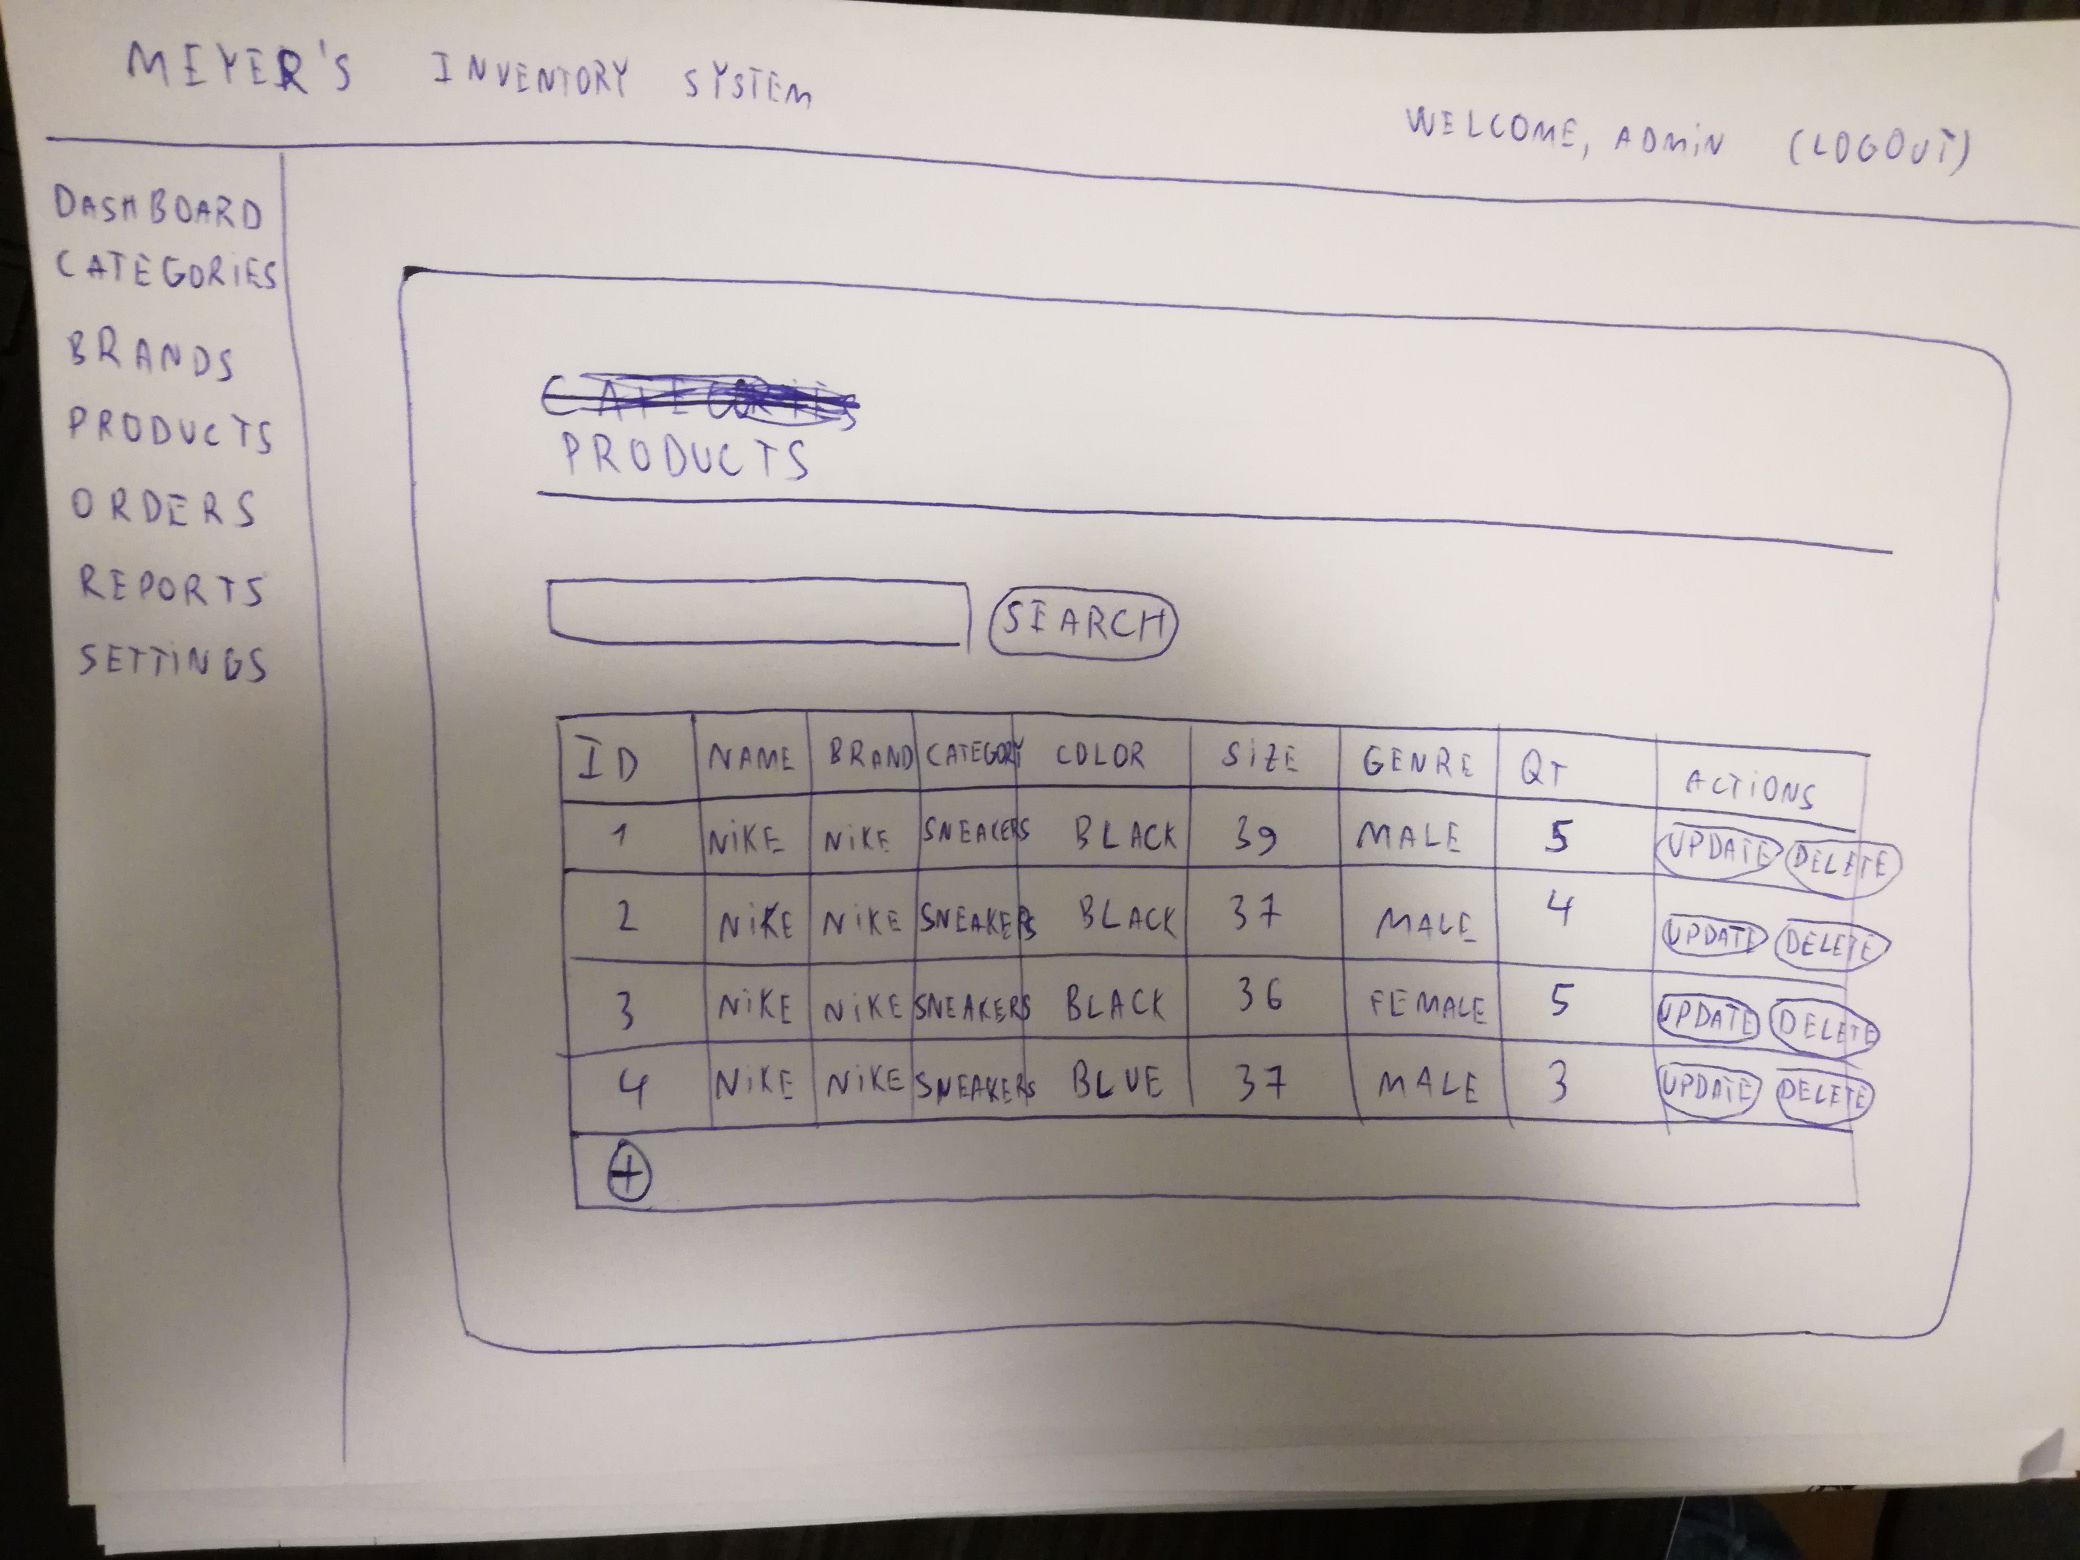 MEYER'S INVENTORY SYSTEM
WELCOME, ADMIN (LOGOUT)
DASHBOARD
CATEGORIES
BRANDS
PRODUCTS
ORDERS
REPORTS
SETTINGS
CATEGORIES
PRODUCTS
SEARCH
ID NAME BRAND CATEGORY COLOR SIZE GENRE QT ACTIONS
1 NIKE NIKE SNEAKERS BLACK 39 MALE 5 UPDATE DELETE
2 NIKE NIKE SNEAKERS BLACK 37 MALE 4 UPDATE DELETE
3 NIKE NIKE SNEAKERS BLACK 36 FEMALE 5 UPDATE DELETE
4 NIKE NIKE SNEAKERS BLUE 37 MALE 3 UPDATE DELETE
+